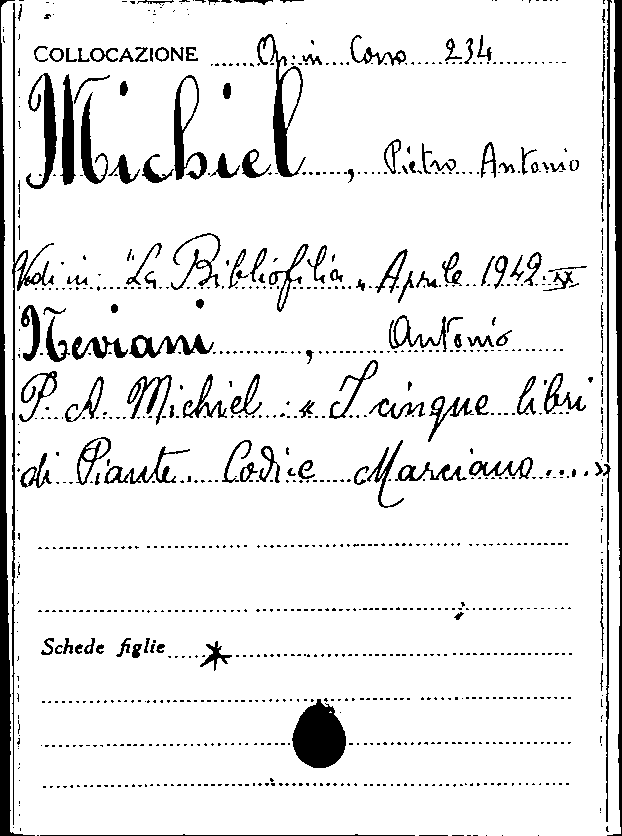 COLLOCAZIONE Op. in Corso 234
Michiel, Pietro Antonio
Vedi in: "La Bibliofilia" Aprile 1942. XX
Neviani, Antonio
P. A. Michiel: « I cinque libri
di Piante. Codice Marciano....»
Schede figlie *